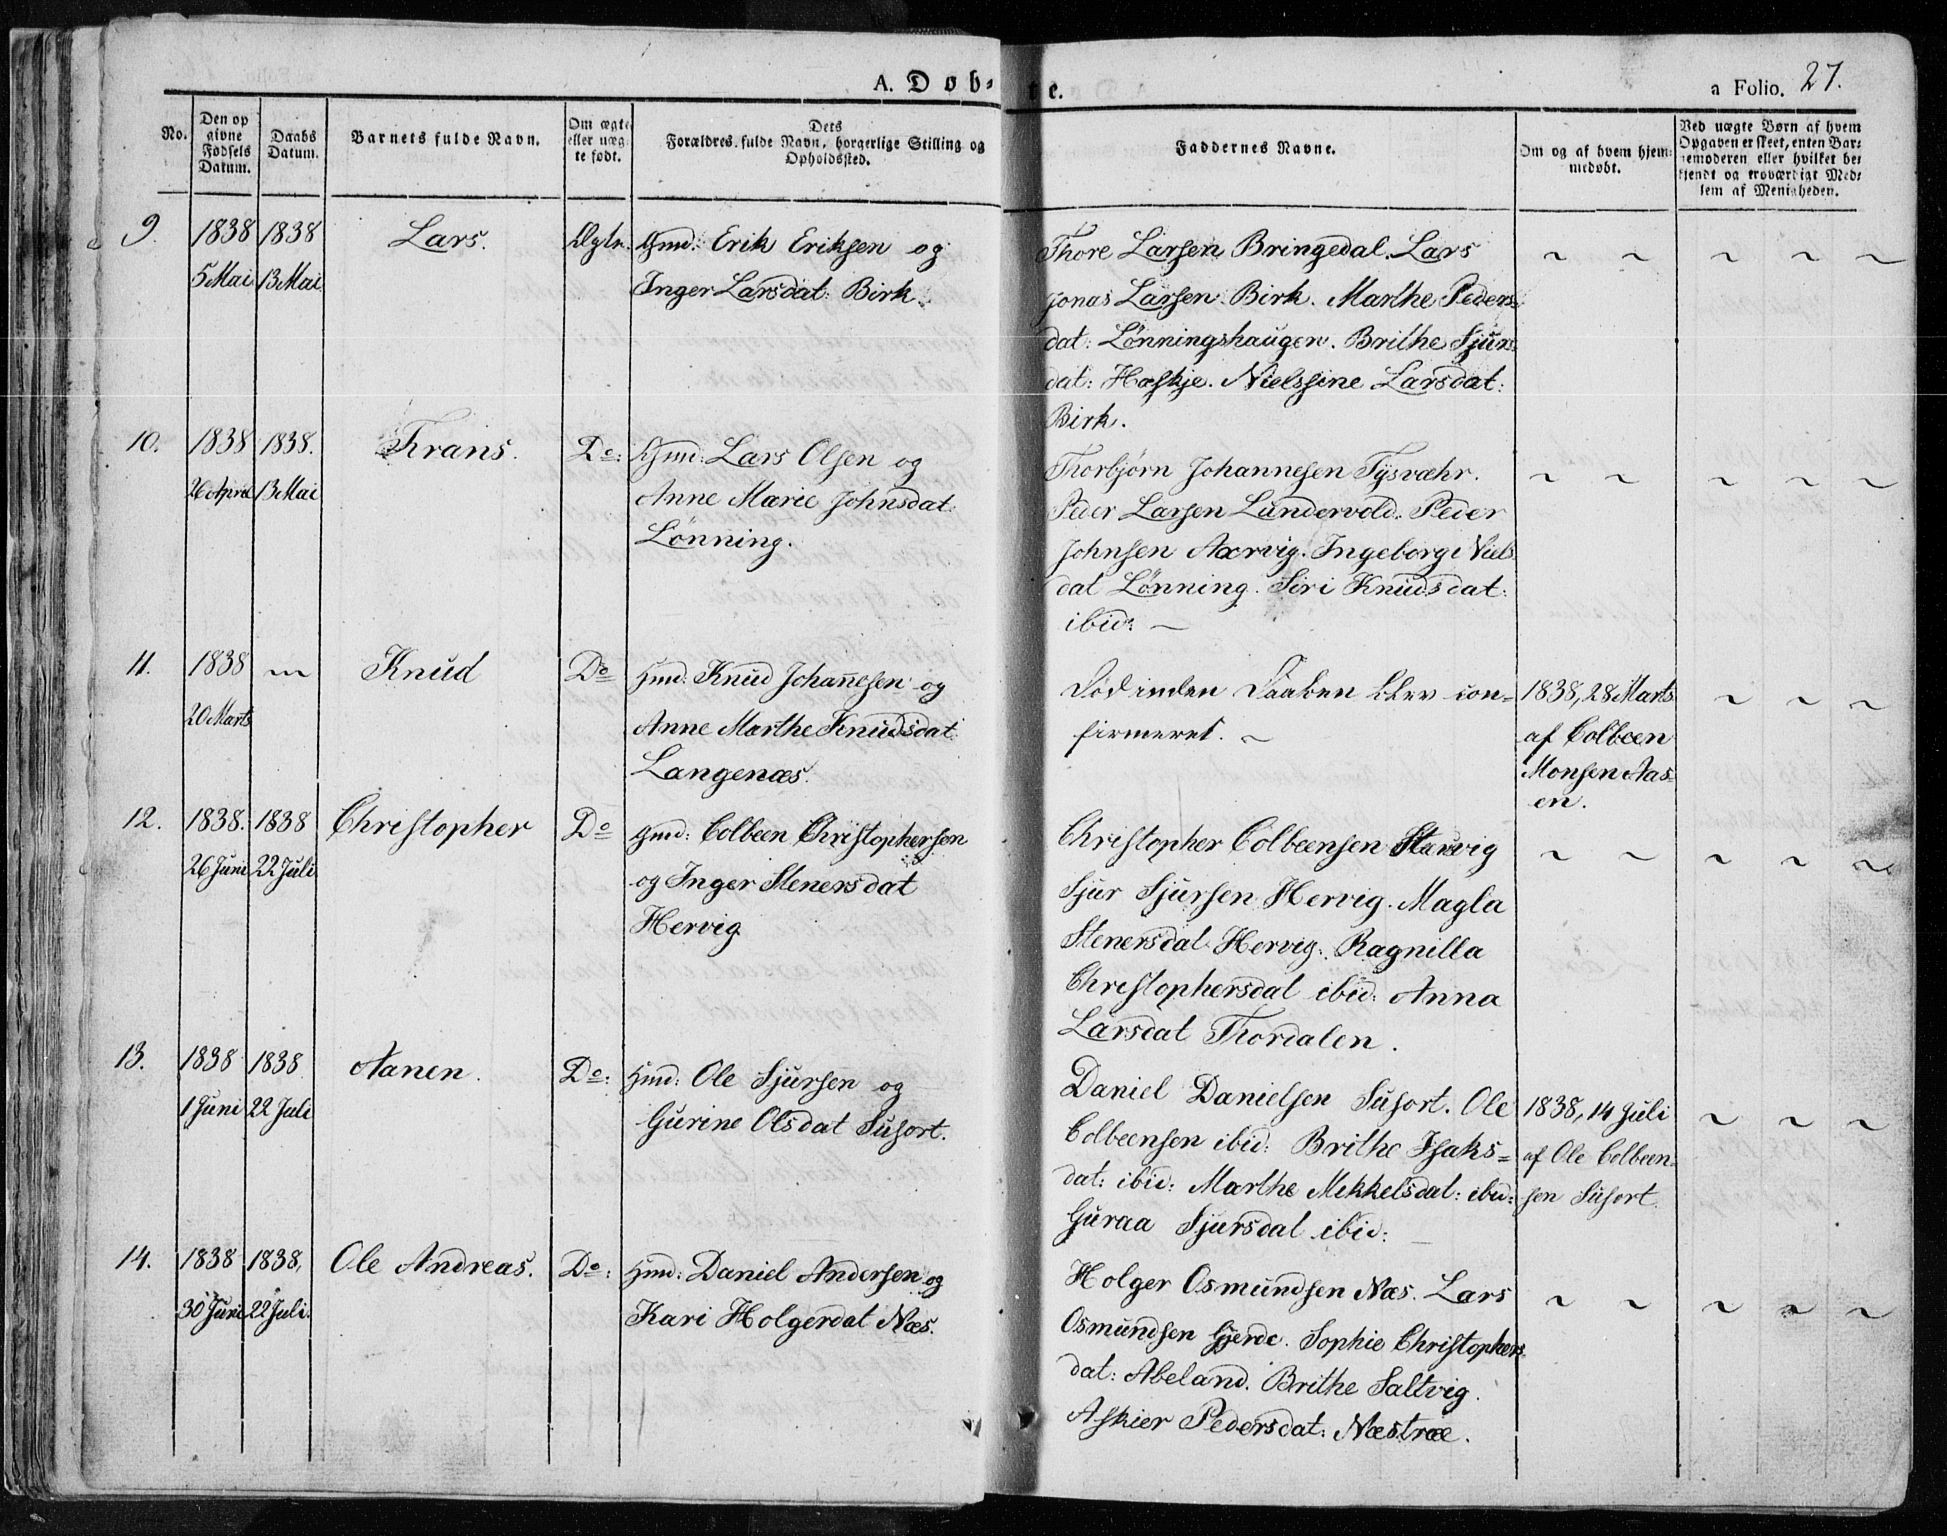 A. Døb= te.
a Folio. 27.
No.
Den op
givne
Fødsels
Datum.
Daabs
Datum.
Barnets fulde Navn.
Om ægte
eller uæg
te født.
Dets
Forældres fulde Navn, borgerlige Stilling og
Opholdssted.
Faddernes Navne.
Om og af hvem hjem=
medøbt.
Ved uægte Børn af hvem
Opgaven er skeet, enten Bar=
nemoderen eller hvilket be=
kjendt og troværdigt Med=
lem af Menigheden.
9. 1838 1838 Lars. Ægte. Gmd: Erik Eriksen og
5 Mai 13 Mai Inger Larsdat: Birk.
Thore Larsen Bringedal. Lars
Jonas Larsen Birk. Marthe Peders=
dat: Lønningshaugen. Brithe Sjurs
dat: Haskje. Nielssine Larsdat:
Birk.
10. 1838 1838. Frans. Do: Gmd: Lars Olsen og
26 April 13 Mai Anne Marie Johnsdat:
Lønning.
Thorbjørn Johannesen Tysvæhr.
Peder Larsen Lundervold. Peder
Johnsen Aarvig. Ingeborg Niels
dat Lønning. Siri Knudsdat:
ibid: —
11. 1838 Knud Do Hmd: Knud Johannesen og
20 Marts Anne Marthe Knudsdat:
Langenæs.
Død inden Daaben blev con=
firmeret. ~
1838, 28 Marts
af Colbeen
Monsen Aas=
en.
12. 1838. 1838 Christopher Do Gmd: Colbeen Christophersen
26 Juni 22 Juli og Inger Stenersdat
Hervig
Christopher Colbeensen
Sjur Sjursen Hervig. Magla
Stenersdat Hervig. Ragnilla
Christophersdat ibid: Anna
Larsdat Thordalen.
13. 1838 1838 Aanen. Do: Hmd: Ole Sjursen og
1 Juni 22 Juli Gurine Olsdat Susort.
Daniel Danielsen Susort. Ole
Colbeensen ibid: Brithe Isaks=
dat: ibid: Marthe Mekkelsdat: ibid:
Guraa Sjursdat ibid:
1838, 14 Juli
af Ole Colbeen=
sen Susort.
14. 1838 1838, Ole Andreas. Do: Hmd: Daniel Andersen og
30 Juni 22 Juli. Kari Holgerdat Næs.
Holger Osmundsen Næs. Lars
Osmundsen Gjerde. Sophie Christophers
dat: Abeland. Brithe Saltvig.
Askier Pedersdat: Næstræe.